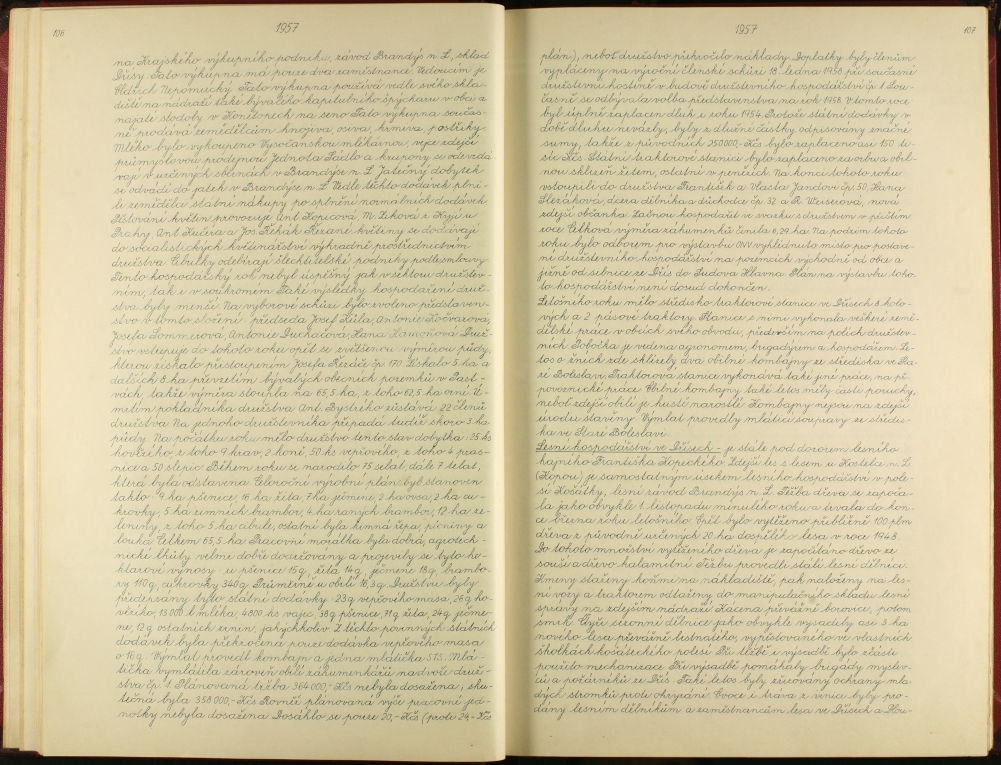 106
1957
na Krajského výkupního podniku, závod Brandýs n. L., sklad
Dřísy. Tato výkupna má pouze dva zaměstnance. Vedoucím je
Oldřich Nepomucký. Tato výkupna používá vedle svého skla-
diště na nádraží také bývalého kapitulního špýcharu v obci a
najaté stodoly v Konětopech na seno. Tato výkupna součas-
ně prodává zemědělcům hnojiva, osiva, krmiva, postřiky.
Mléko bylo vykoupeno Vysočanskou mlékárnou, vejce zdejší
průmyslovou prodejnou Jednota. Sádlo a krupony se odevzdá-
vají v určených sběrnách v Brandýse n. L. Jatečný dobytek
se odvádí do jatek v Brandýse n. L. Vedle těchto dodávek plni-
li zemědělci státní nákupy po splnění normálních dodávek.
Pěstování květin provozuje Ant. Kopicová, M. Leková z Kyjí u
Prahy, Ant. Kučera a Jos. Řehák. Řezané květiny se dodávají
do socialistických květinářství výhradně prostřednictvím
družstva. Cibulky odebírají šlechtitelské podniky podle smlouvy.
Tento hospodářský rok nebyl úspěšný jak v sektoru družstev-
ním, tak i v soukromém. Také výsledky hospodaření druž-
stva byly menší. Na výborové schůzi bylo zvoleno představen-
stvo v tomto složení: předseda Josef Kůla, Antonie Kočvarova,
Josefa Sommerová, Antonie Duchačová, Hana Harwoňová. Druž-
stvo vstupuje do tohoto roku opět se zvětšenou výměrou půdy,
kterou získalo přistoupením Josefa Řezáče čp. 170. Získalo 5 ha a
dalších 3 ha převzetím bývalých obecních pozemků v Past-
vách, takže výměra stoupla na 65,5 ha, z toho 62,5 ha orní. Ú-
mrtím pokladníka družstva Ant. Bystrého zůstává 22 členů
družstva. Na jednoho družstevníka připadá tudíž skoro 3 ha
půdy. Na počátku roku mělo družstvo tento stav dobytka: 25 ks
hovězího, z toho 9 krav, 2 koně, 50 ks vepřového, z toho 4 pras-
nice a 50 slepic. Během roku se narodilo 75 selat, dále 7 telat,
která byla odstavena. Celoroční výrobní plán byl stanoven
takto: 9 ha pšenice, 16 ha žita, 7 ha ječmene, 2 ha ovsa, 2 ha cu-
krovky, 5 ha zimních brambor, 4 ha raných brambor, 12 ha ze-
leniny, z toho 5 ha cibule, ostatní byla krmná řepa, pícniny a
louka. Celkem 65,5 ha. Pracovní morálka byla dobrá, agrotech-
nické lhůty velmi dobře dodržovány a projevily se tyto he-
ktarové výnosy: u pšenice 15 q, žita 14 q, ječmene 18 q, brambo-
ry 110 q, cukrovky 340 q. Průměrně u obilí 16,3 q. Družstvu byly
předepsány tyto státní dodávky: 23 q vepřového masa, 26 q ho-
vězího, 13.000 l mléka, 4800 ks vajec, 58 q pšenice, 71 q žita, 24 q ječme-
ne, 12 q ostatních zrnin, jakýchkoliv. Z těchto povinných státních
dodávek byla překročena pouze dodávka vepřového masa
o 16 q. Výmlat provedl kombajn a jedna mlátička S.T.S. Mlá-
tička vymlátila zároveň obilí záhumenkářů na dvoře druž-
stva čp. 1. Plánovaná tržba 364 000,- Kčs nebyla dosažena, sku-
tečná byla 358 000,- Kčs. Rovněž plánovaná výše pracovní jed-
notky nebyla dosažena. Dosáhlo se pouze 20,- Kčs (proti 24,- Kčs
1957
107
plán), neboť družstvo překročilo náklady. Doplatky byly členům
vyplaceny na výroční členské schůzi 18. ledna 1958 při současné
družstevní hostině v budově družstevního hospodářství čp. 1. Sou-
časně se odbývala volba představenstva na rok 1958. V tomto roce
byl úplně zaplacen dluh z roku 1954. Protože státní dodávky v
době dluhu nevázly, byly z dlužné částky odpisovány značné
sumy, takže z původních 250 000,- Kčs bylo zaplaceno asi 150 ti-
síc Kčs. Státní traktorové stanici bylo zaplaceno za orbu a obil-
nou sklizeň žitem, ostatní v penězích. Na konci tohoto roku
vstoupili do družstva František a Vlasta Jandovi čp. 50, Hana
Slezáková, dcera dělníka a důchodce čp. 32 a R. Weiserová, nová
zdejší občanka. Začnou hospodařit ve svazku s družstvem v příštím
roce. Celková výměra záhumenků činila 6,29 ha. Na podzim tohoto
roku bylo odborem pro výstavbu ONV vyhlédnuto místo pro postave-
ní družstevního hospodářství na pozemcích východně od obce a
jižně od silnice ze Dřís do Sudova Hlavna. Plán na výstavbu toho-
to hospodářství není dosud dokončen.
Letošního roku mělo středisko traktorové stanice ve Dřísech 8 kolo-
vých a 2 pásové traktory. Stanice s nimi vykonala veškeré země-
dělské práce v obcích svého obvodu, především na polích družstev-
ních. Pobočka je vedena agronomem, brigadýrem a hospodářem. Le-
tos o žních zde sklízely dva obilní kombajny ze střediska ve Sta-
ré Boleslavi. Traktorová stanice vykonává také jiné práce, na př.
povoznické práce. Obilní kombajny také letos měly časté poruchy,
neboť zdejší obilí je hustě narostlé. Kombajny nejsou na zdejší
úrodu stavěny. Výmlat prováděly mlátící soupravy ze středis-
ka ve Staré Boleslavi.
Lesní hospodářství ve Dřísech - je stále pod dozorem lesního
hajného Františka Kopeckého. Zdejší les s lesem u Kostelce n. L.
(Kopou) je samostatným úsekem lesního hospodářství v pole-
sí Košátky, lesní závod Brandýs n. L. Těžba dřeva se započa-
la jako obvykle 1. listopadu minulého roku a trvala do kon-
ce března roku letošního. Opět bylo vytěženo přibližně 100 plm
dřeva z původně určených 20 ha dospělého lesa v roce 1948.
Do tohoto množství vytěženého dřeva je započítáno dřevo ze
souší a dřevo kalamitní. Těžbu provedli stálí lesní dělníci.
Kmeny staženy koňmi na nákladiště, pak naloženy na les-
ní vozy a traktorem odtaženy do manipulačního skladu lesní
správy na zdejším nádraží. Kácena převážně borovice, potom
smrk. Čtyři sezonní dělnice jako obvykle vysadily asi 3 ha
nového lesa převážně listnatého, vypěstovaného ve vlastních
školkách košáteckého polesí. Při těžbě i výsadbě bylo zčásti
použito mechanizace. Při výsadbě pomáhaly brigády mysliv-
ců a požárníků ze Dřís. Také letos byly zřizovány ochrany mla-
dých stromků proti okusování. Ovoce i tráva z vinic byly pro-
dány lesním dělníkům a zaměstnancům lesa ve Dřísech a Hlou-